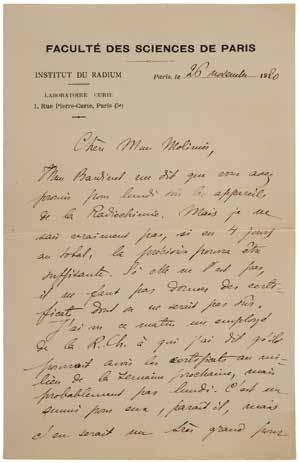 FACULTÉ DES SCIENCES DE PARIS
INSTITUT DU RADIUM
LABORATOIRE CURIE
1, Rue Pierre-Curie, Paris (5e)
Paris, le 26 novembre
Chère Mme Molinier,
Mme Bardinet me dit que vous avez
promis pour lundi les appareils
de la Radiochimie. Mais je ne
sais vraiment pas, si en 4 jours
au total, la précision pourra être
suffisante. Si elle ne l'est pas,
il ne faut pas donner des certi-
ficats, dont on ne serait pas sûr.
J'ai vu ce matin un employé
de la R. Ch. à qui j'ai dit qu'ils
pourrait avoir les certificats au mi-
lieu de la semaine prochaine, mais
probablement pas lundi. C'est un
ennui pour eux, paraît-il, mais
c'en serait un très grand pour